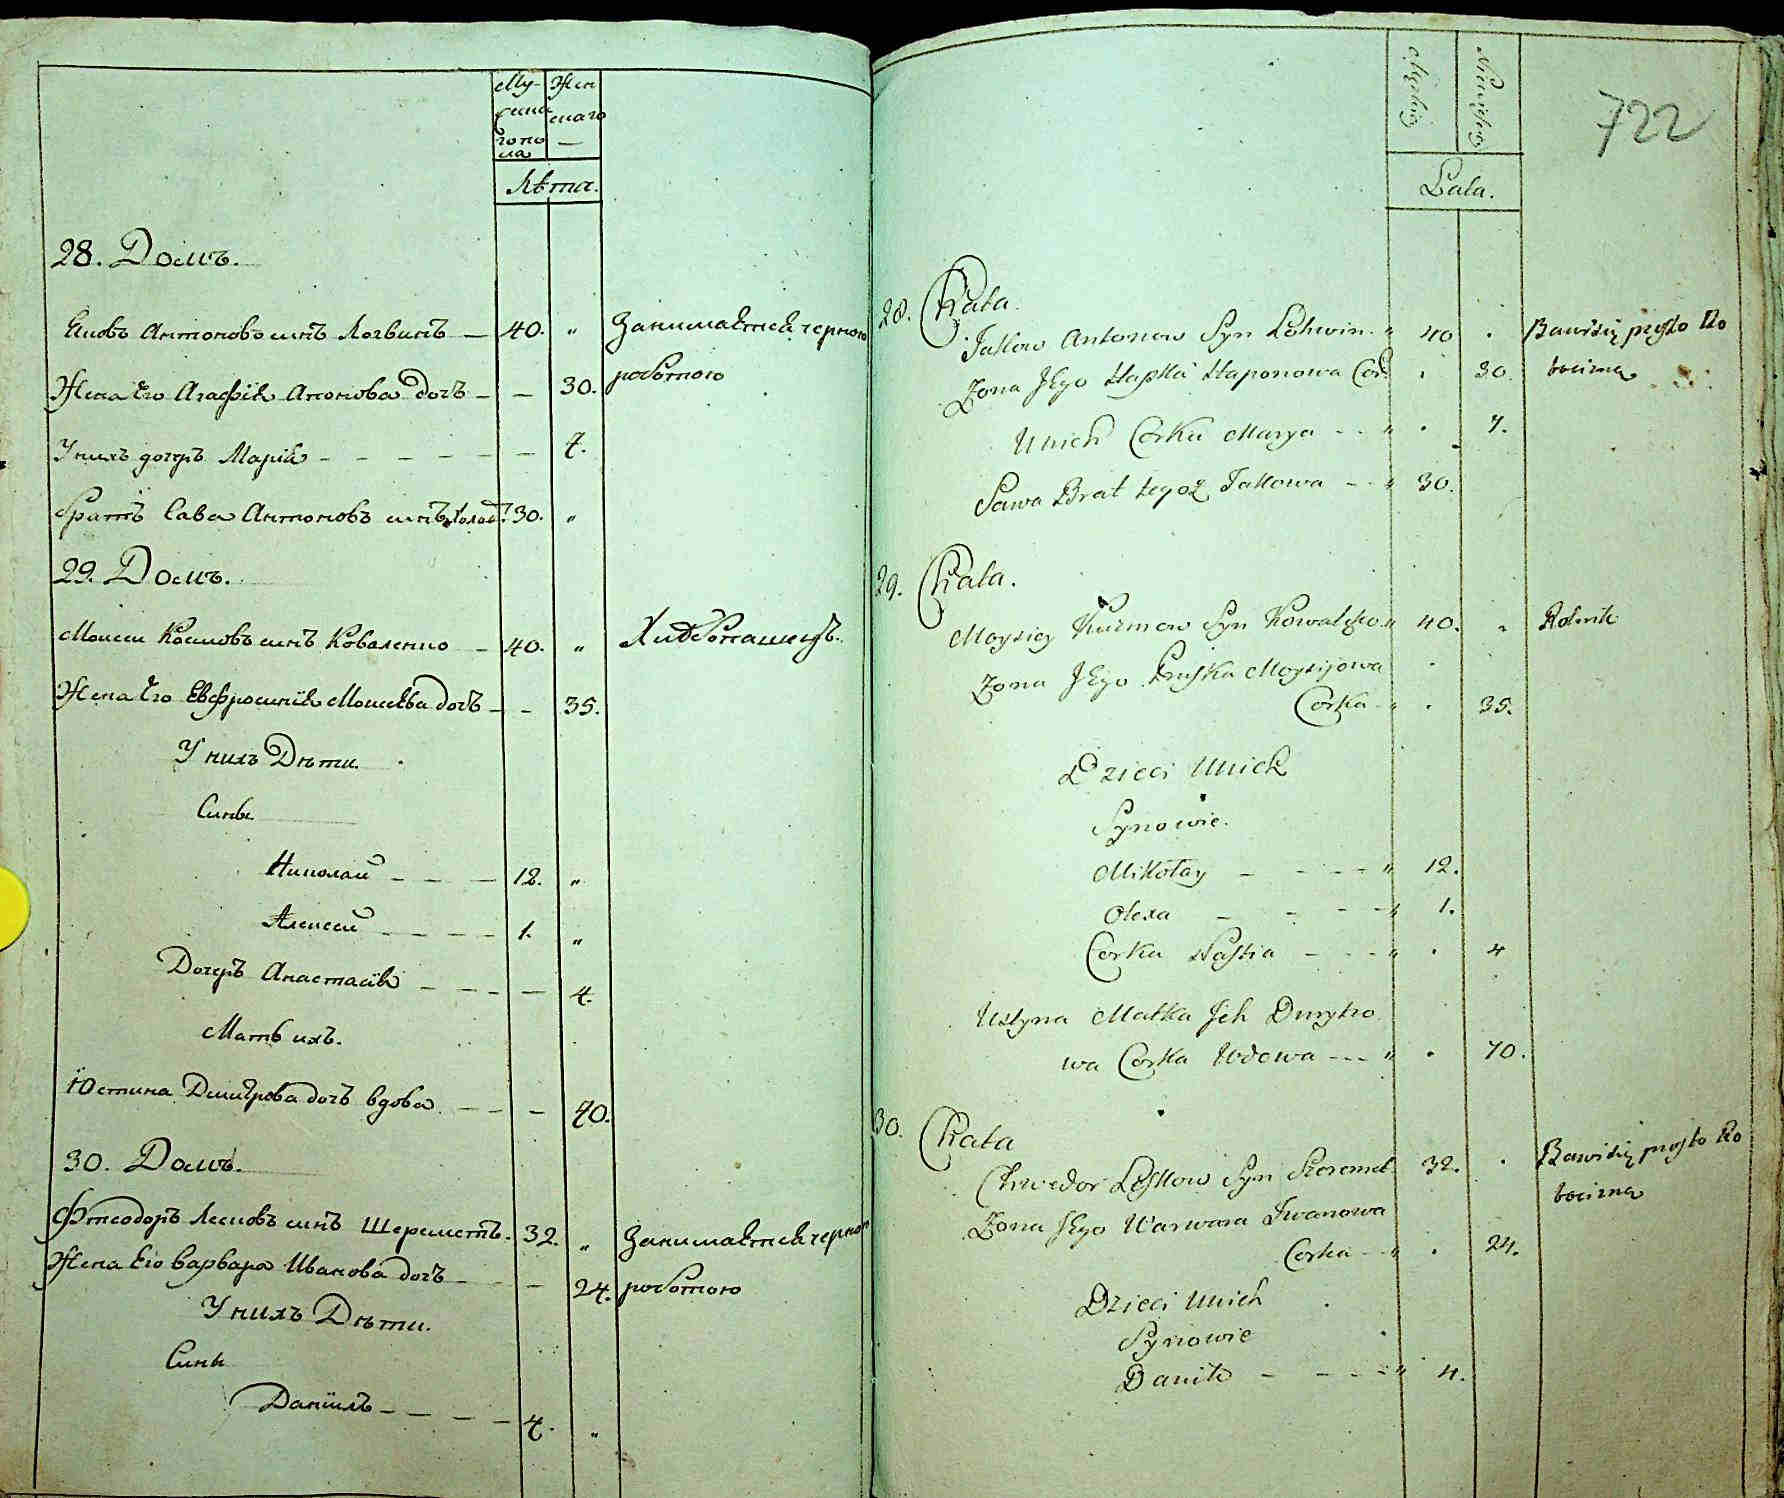 Му-
жеска
го по
ла
Жен
скаго
Лѣта.
28. Домъ.
Яковъ Антоновъ синъ Логвинъ — 40. "
Занимаѣтся черною
роботою
Жена Его Агафія Агонова дочъ — — 30.
У нихъ дочеръ Марія — — — — — — 7.
Братъ Сава Антоновъ синъ холост. 30. "
29. Домъ.
Моисеи Космовъ синъ Коваленко — 40. "
Хлѣбопашецъ.
Жена Его Евфросинія Моисѣева дочъ — — 35.
У нихъ Дѣти.
Сины
Николай — — — 12. "
Алексей — — — — 1. "
Дочеръ Анастасія — — — — 4.
Мать ихъ.
Юстина Дмитрова дочъ вдова. — — — 70.
30. Домъ.
Фтеодоръ Лесковъ синъ Шереметъ. 32. "
Занимаѣтся черною
Жена Его Варвара Иванова дочъ — — 24.
роботою
У нихъ Дѣти.
Сины
Даніилъ — — — — 4. "
Męzkiey
Niewieskiey
722
Lata.
28. Chata.
Jakow Antonow Syn Lohwin. " 40 .
Bawi się prosto Ro
bocizną
Zona Jego Hapka Haponowa Cor. . 30.
Unich Corka Marya - - " . 7.
Sawa Brat tegoż Jakowa - - " 30.
29. Chata.
Moysiey Kuzmow Syn Kowalenko " 40. "
Rolnik
Zona Jego Pruska Moysijowa
Corka - " . 35.
Dzieci Unich
Synowie.
Mikołay - - - - " 12.
Olexa - - - - " 1.
Corka Nastia - - - " . 4
Ustyna Matka Jch Dmytro
wa Corka Wdowa - - - " . 70.
30. Chata
Chwedor Leskow Syn Szeremet 32. .
Bawi się prosto Ro
bocizną
Zona Jego Warwara Jwanowa
Corka - - " . 24.
Dzieci Unich
Synowie
Daniło - - - - " 4.